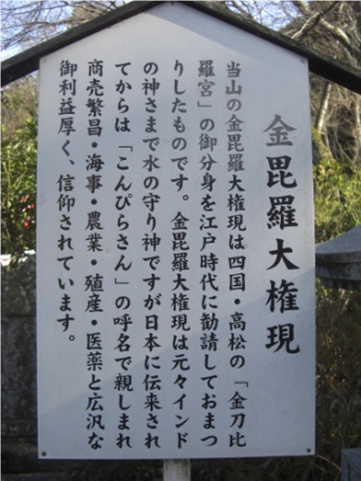 金毘羅大権現
当山の金毘羅大権現は四国・高松の「金刀比
羅宮」の御分身を江戸時代に勧請しておまつ
りしたものです。金毘羅大権現は元々インド
の神さまで水の守り神ですが日本に伝来され
てからは「こんぴらさん」の呼名で親しまれ
商売繁昌・海事・農業・殖産・医薬と広汎な
御利益厚く、信仰されています。